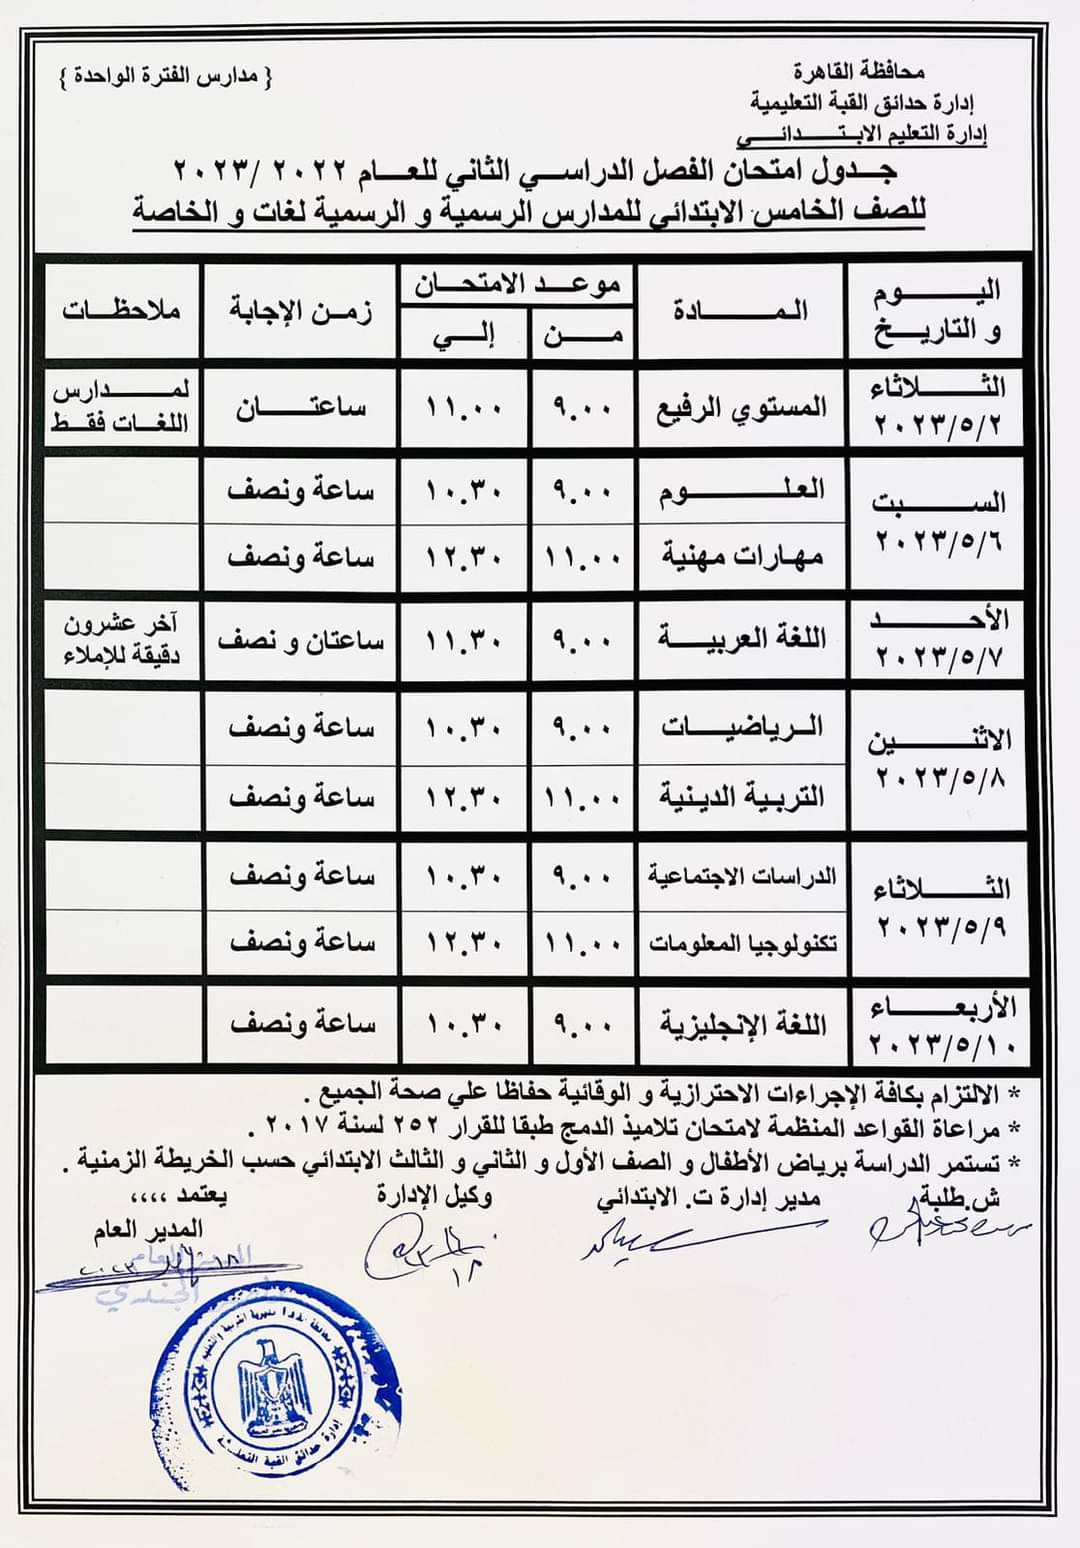 محافظة القاهرة
{ مدارس الفترة الواحدة }
إدارة حدائق القبة التعليمية
إدارة التعليم الابتدائي
جدول امتحان الفصل الدراسي الثاني للعام ٢٠٢٢ /٢٠٢٣
للصف الخامس الابتدائي للمدارس الرسمية و الرسمية لغات و الخاصة
اليوم و التاريخ المادة موعد الامتحان من إلي زمن الإجابة ملاحظات
الثلاثاء ٢٠٢٣/٥/٢ المستوي الرفيع ٩.٠٠ ١١.٠٠ ساعتان لمدارس اللغات فقط
السبت ٢٠٢٣/٥/٦ العلوم ٩.٠٠ ١٠.٣٠ ساعة ونصف
مهارات مهنية ١١.٠٠ ١٢.٣٠ ساعة ونصف
الأحد ٢٠٢٣/٥/٧ اللغة العربية ٩.٠٠ ١١.٣٠ ساعتان و نصف آخر عشرون دقيقة للإملاء
الاثنين ٢٠٢٣/٥/٨ الرياضيات ٩.٠٠ ١٠.٣٠ ساعة ونصف
التربية الدينية ١١.٠٠ ١٢.٣٠ ساعة ونصف
الثلاثاء ٢٠٢٣/٥/٩ الدراسات الاجتماعية ٩.٠٠ ١٠.٣٠ ساعة ونصف
تكنولوجيا المعلومات ١١.٠٠ ١٢.٣٠ ساعة ونصف
الأربعاء ٢٠٢٣/٥/١٠ اللغة الإنجليزية ٩.٠٠ ١٠.٣٠ ساعة ونصف
* الالتزام بكافة الإجراءات الاحترازية و الوقائية حفاظا علي صحة الجميع .
* مراعاة القواعد المنظمة لامتحان تلاميذ الدمج طبقا للقرار ٢٥٢ لسنة ٢٠١٧ .
* تستمر الدراسة برياض الأطفال و الصف الأول و الثاني و الثالث الابتدائي حسب الخريطة الزمنية .
ش.طلبة مدير إدارة ت. الابتدائي وكيل الإدارة يعتمد ،،،،
المدير العام
المدير العام
الجندي
إدارة حدائق القبة التعليمية